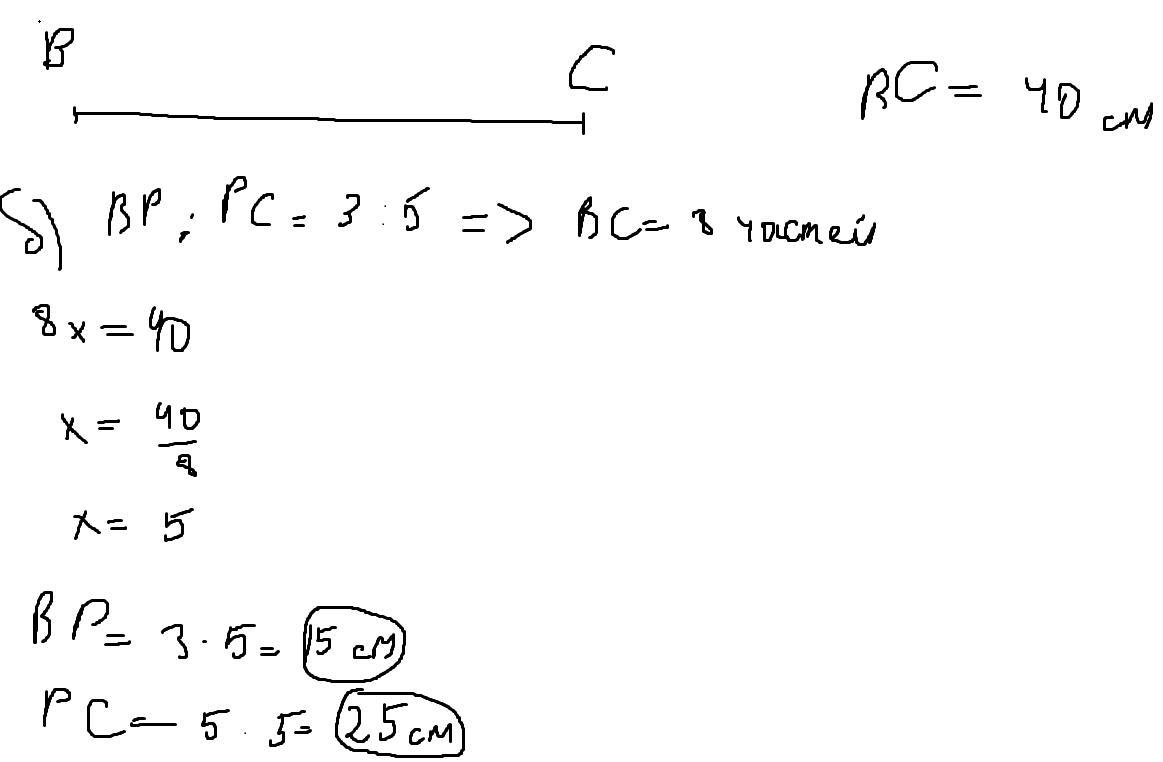 B
C
BC = 40 см
б) BP : PC = 3 : 5 => BC = 8 частей
8x = 40
x = 40/8
x = 5
BP = 3 · 5 = 15 см
PC = 5 · 5 = 25 см